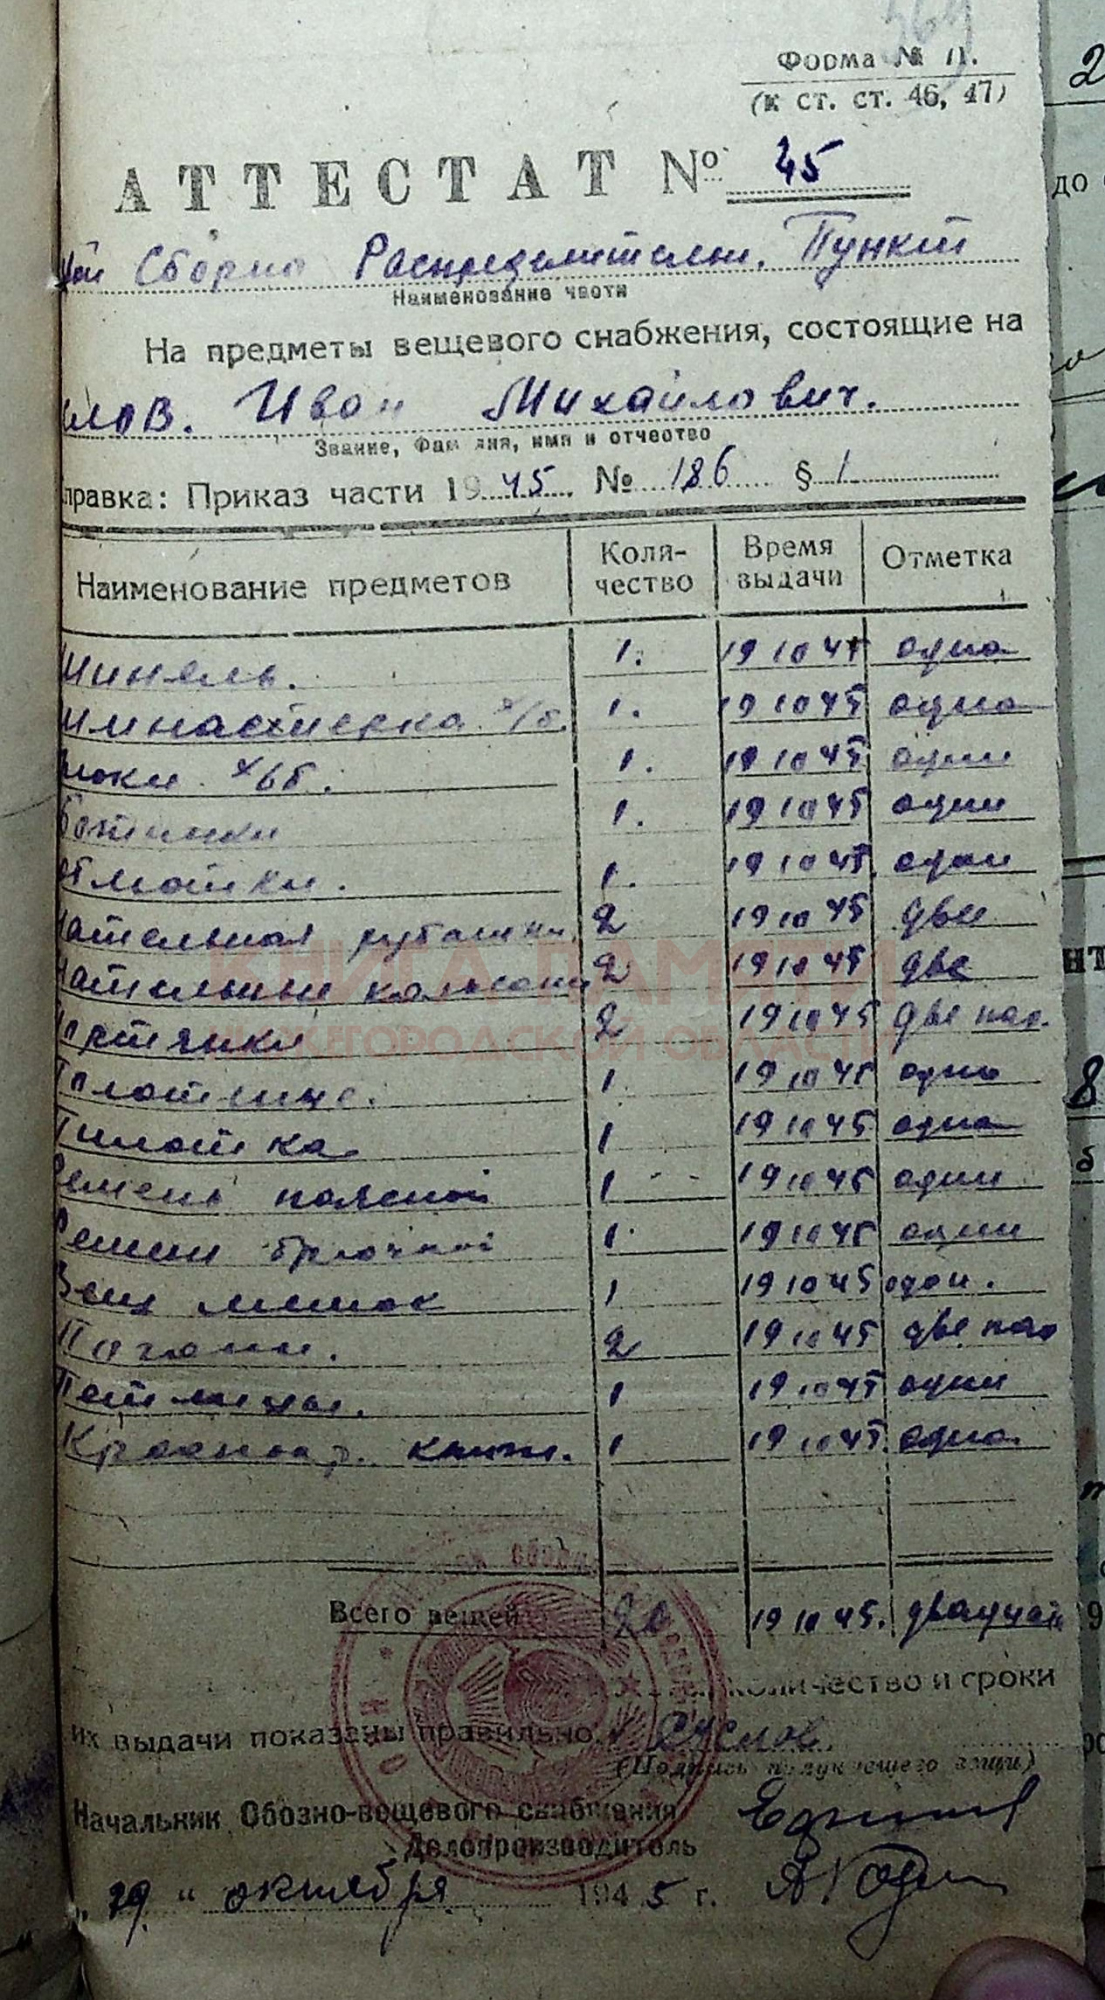 369
Форма № 11.
(К ст. ст. 46, 47)
АТТЕСТАТ № 45
Сборно Распределительн. Пункт
Наименование части
На предметы вещевого снабжения, состоящие на
лов. Иван Михайлович.
Звание, Фамилия, имя и отчество
правка: Приказ части 1945. № 186 § 1
Наименование предметов Коли-чество Время выдачи Отметка
Шинель. 1. 19 10 45 одна
имнастиерка х/б. 1. 19 10 45 одна
рюки х/бб. 1. 19 10 45 одни
Ботинки 1. 19 10 45 одни
обмотки. 1. 19 10 45 одни
нательная рубашки 2 19 10 45 две
нательные кальсоны 2 19 10 45 две
портянки 2 19 10 45 две пар.
Полотенце. 1 19 10 45 одно
Пилотка 1 19 10 45 одна
Ремень поясной 1 19 10 45 один
Ремень брючной 1 19 10 45 один
Вещ мешок 1 19 10 45 один.
Погоны. 2 19 10 45 две пар
Петлицы. 1 19 10 45 одни
Красноар. книж. 1 19 10 45. одна
Всего вещей 20 19 10 45. двадцать
количество и сроки
их выдачи показаны правильно Суслов.
(Подпись получающего вещи)
Начальник Обозно-вещевого снабжения
Делопроизводитель
„29" октября 1945 г.
КНИГА ПАМЯТИ
НИЖЕГОРОДСКОЙ ОБЛАСТИ